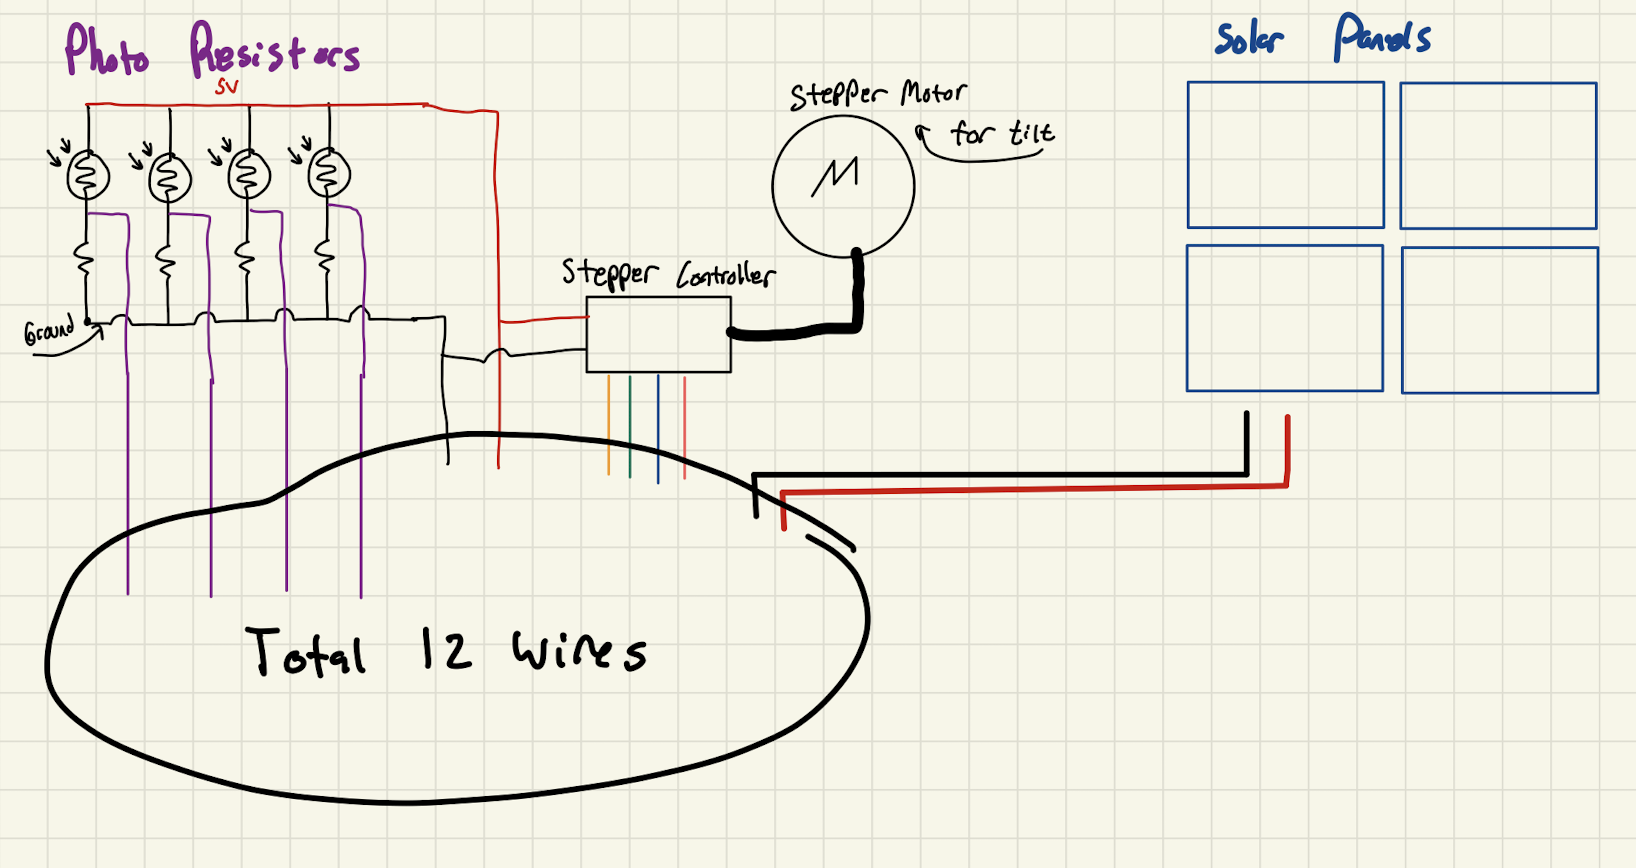 Photo Resistors
5V
Ground
Stepper Motor
for tilt
Stepper Controller
Solar Panels
Total 12 wires